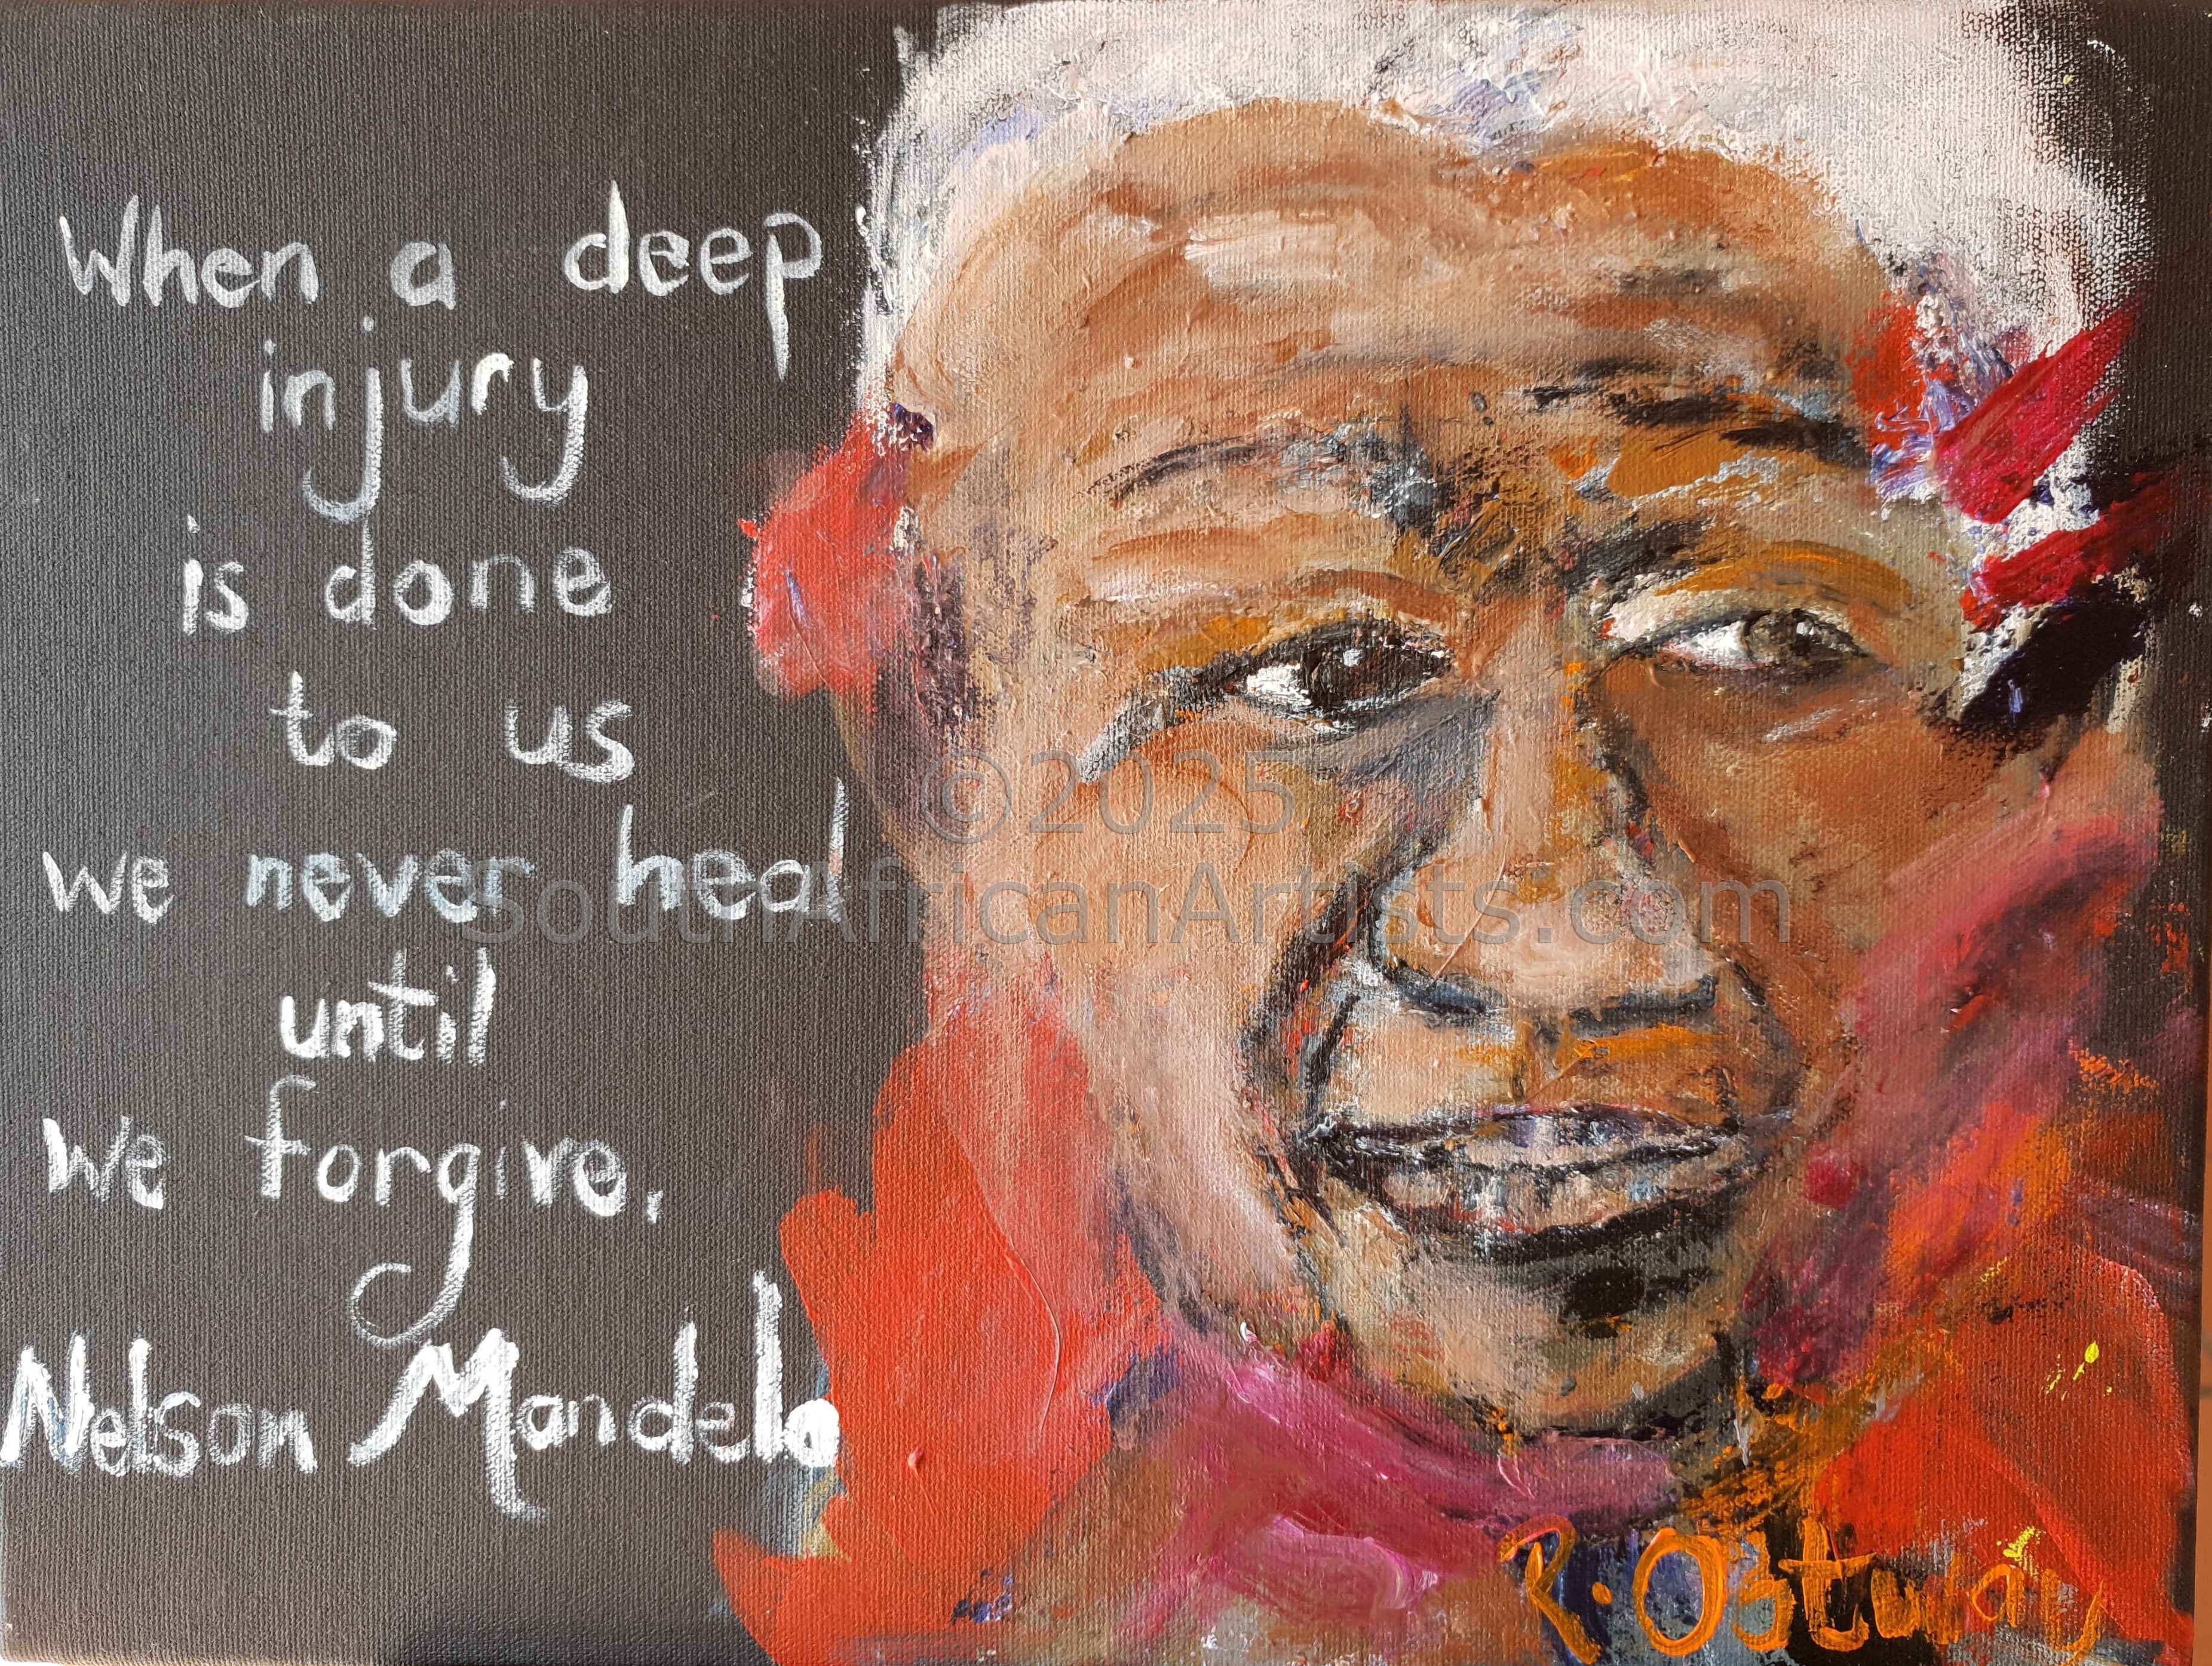 When a deep
injury
is done
to us
we never heal
until
we forgive,
Nelson Mandela
©2025
SouthAfricanArtists.com
R. Ostway